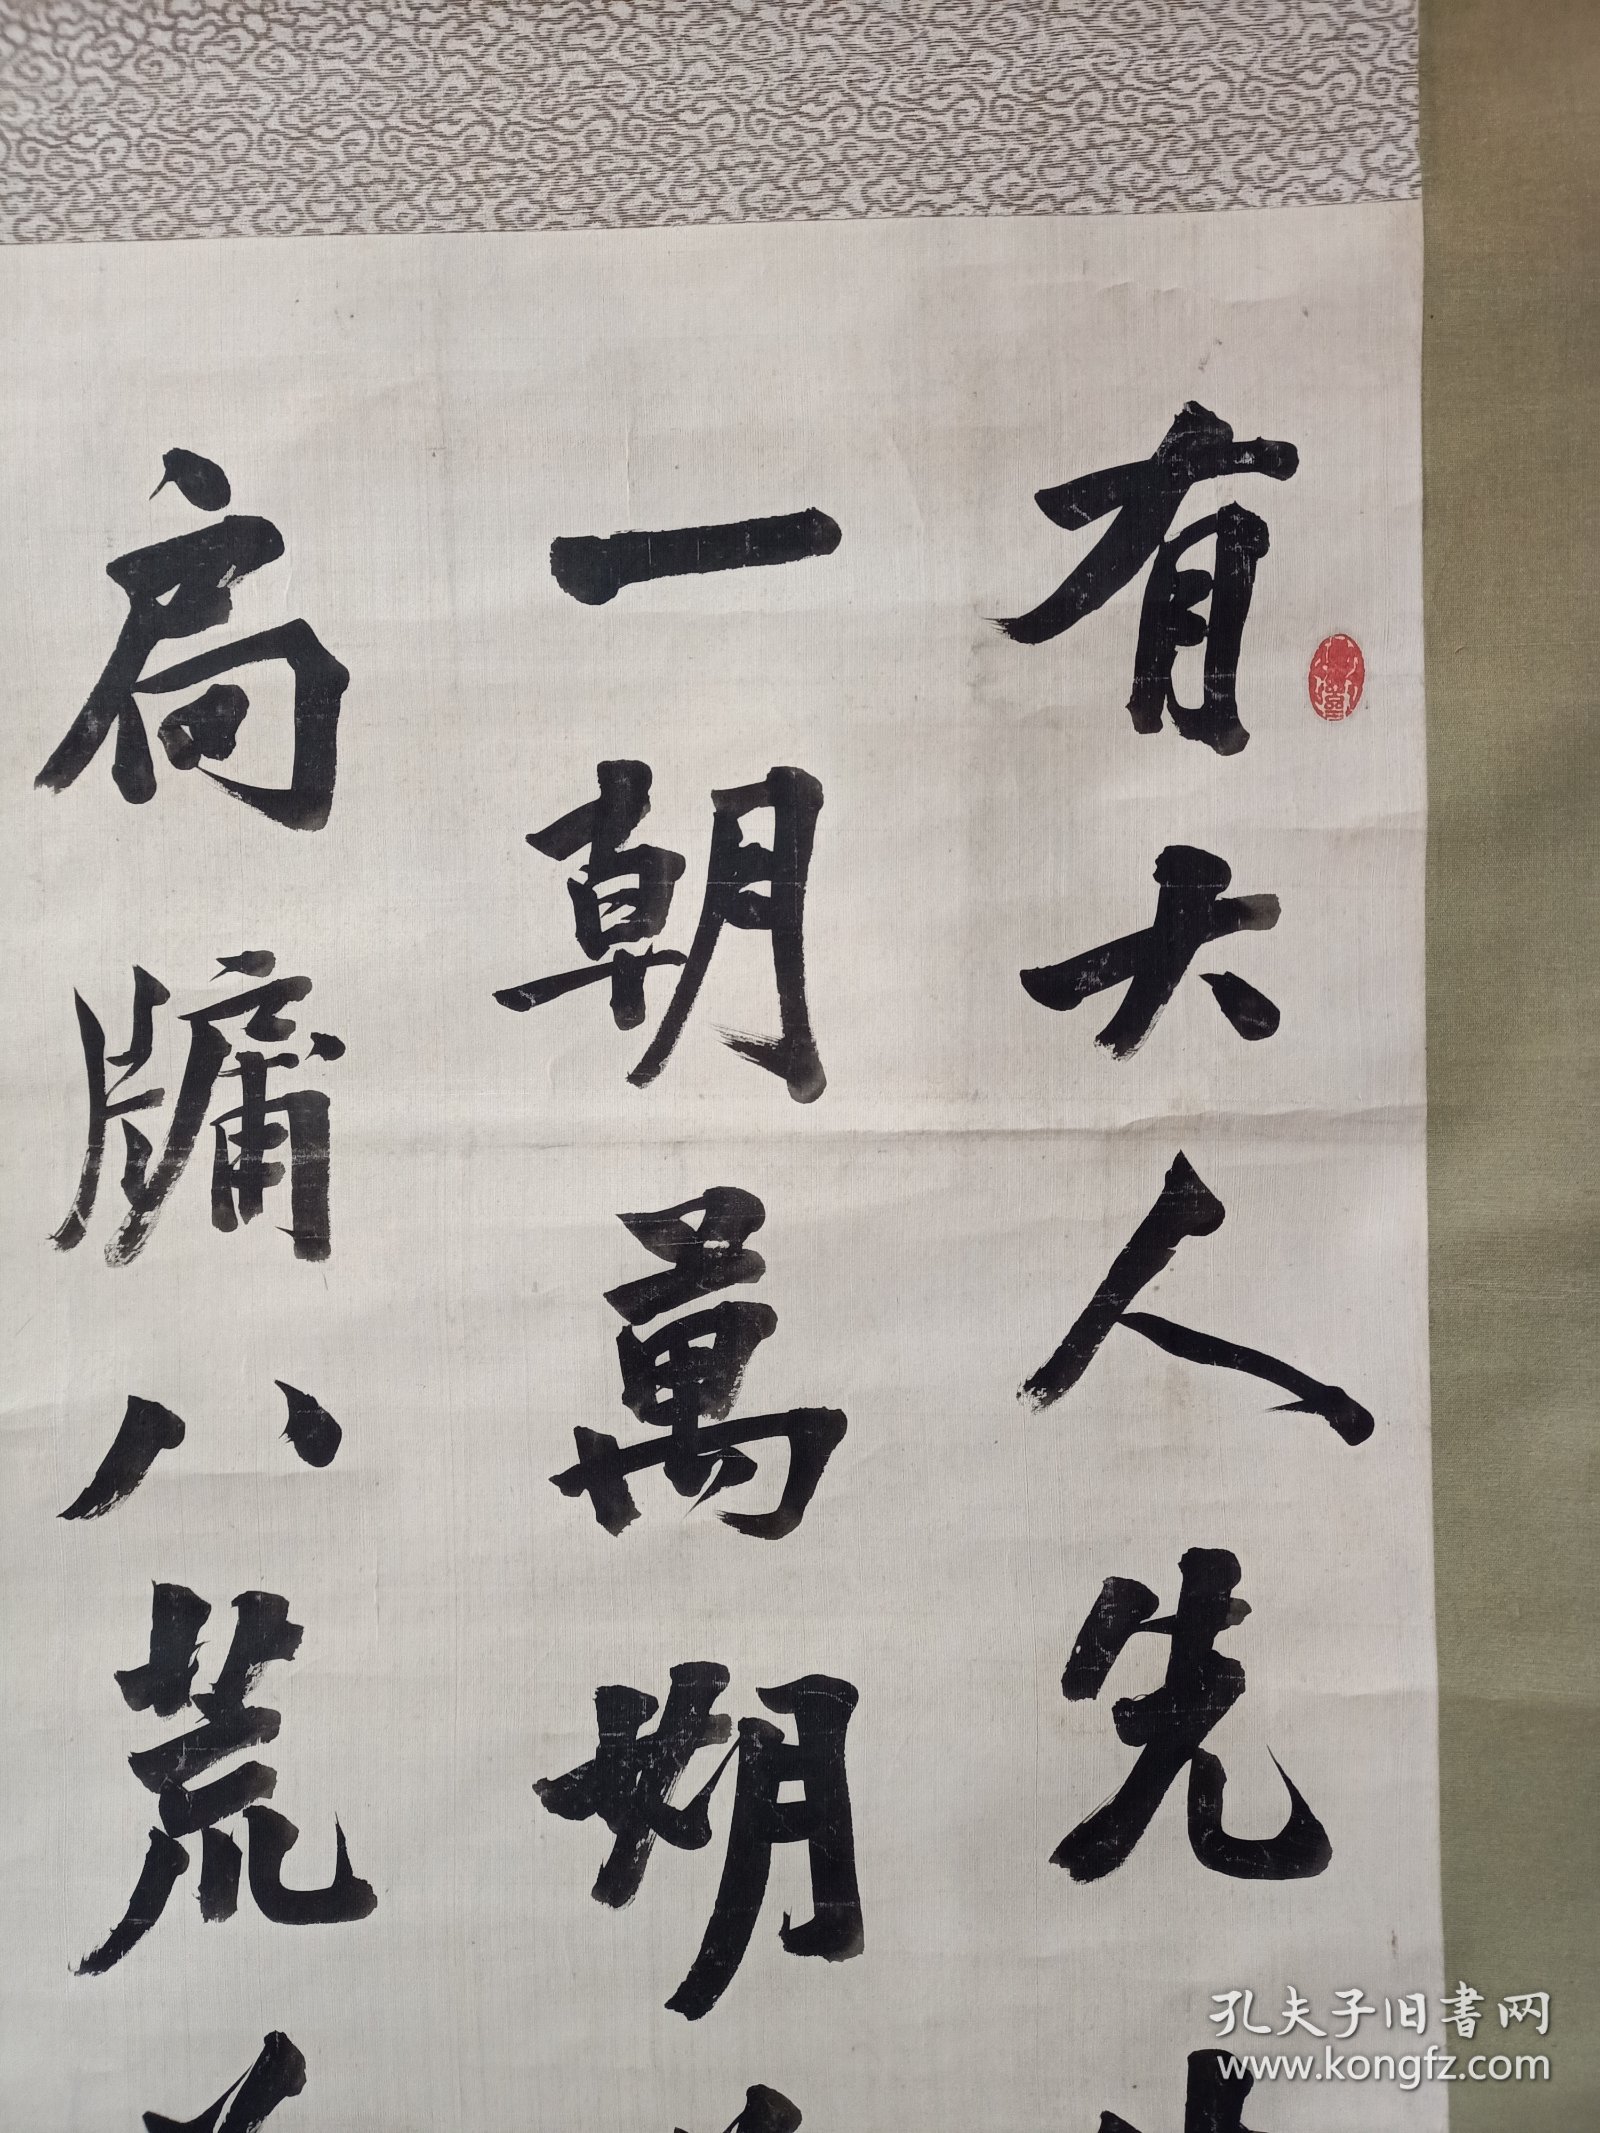 有大人先
一朝萬期
扃牖八荒
孔夫子旧書网
www.kongfz.com